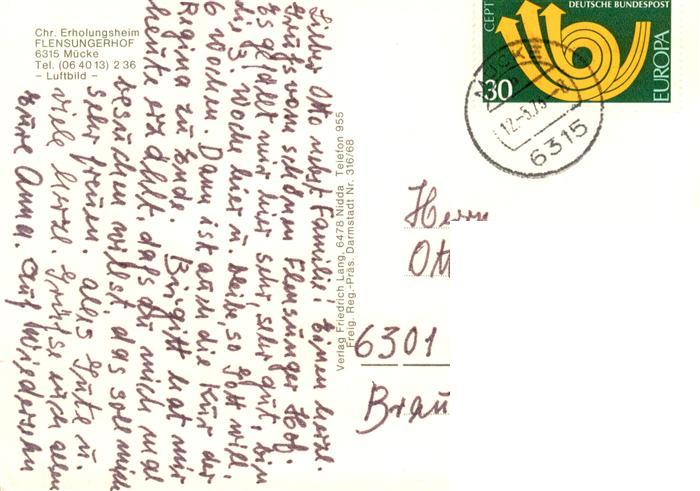 Chr. Erholungsheim
FLENSUNGERHOF
6315 Mücke
Tel. (06 40 13) 2 36
– Luftbild –
Lieber Otto nebst Familie! Einen herzl.
Gruß vom schönen Flensunger Hof.
Es gefällt mir hier sehr sehr gut, bin
die 3. Woche hier u. bleibe, so Gott will,
6 Wochen. Dann ist auch die Kur der
Regina zu Ende. Birgitt hat mir
heute erzählt, daß du mich mal
besuchen willst das soll mich
sehr freuen. alles Gute u.
viele herzl. Grüße euch allen
Eure Anna. Auf Wiedersehn
Verlag Friedrich Lang, 6478 Nidda Telefon 955
Freig. Reg.-Präs. Darmstadt Nr. 316/68
CEPT
DEUTSCHE BUNDESPOST
EUROPA
30
MÜCKE
12.-5.73.-8
6315
Herrn
Ott
6301
Brau